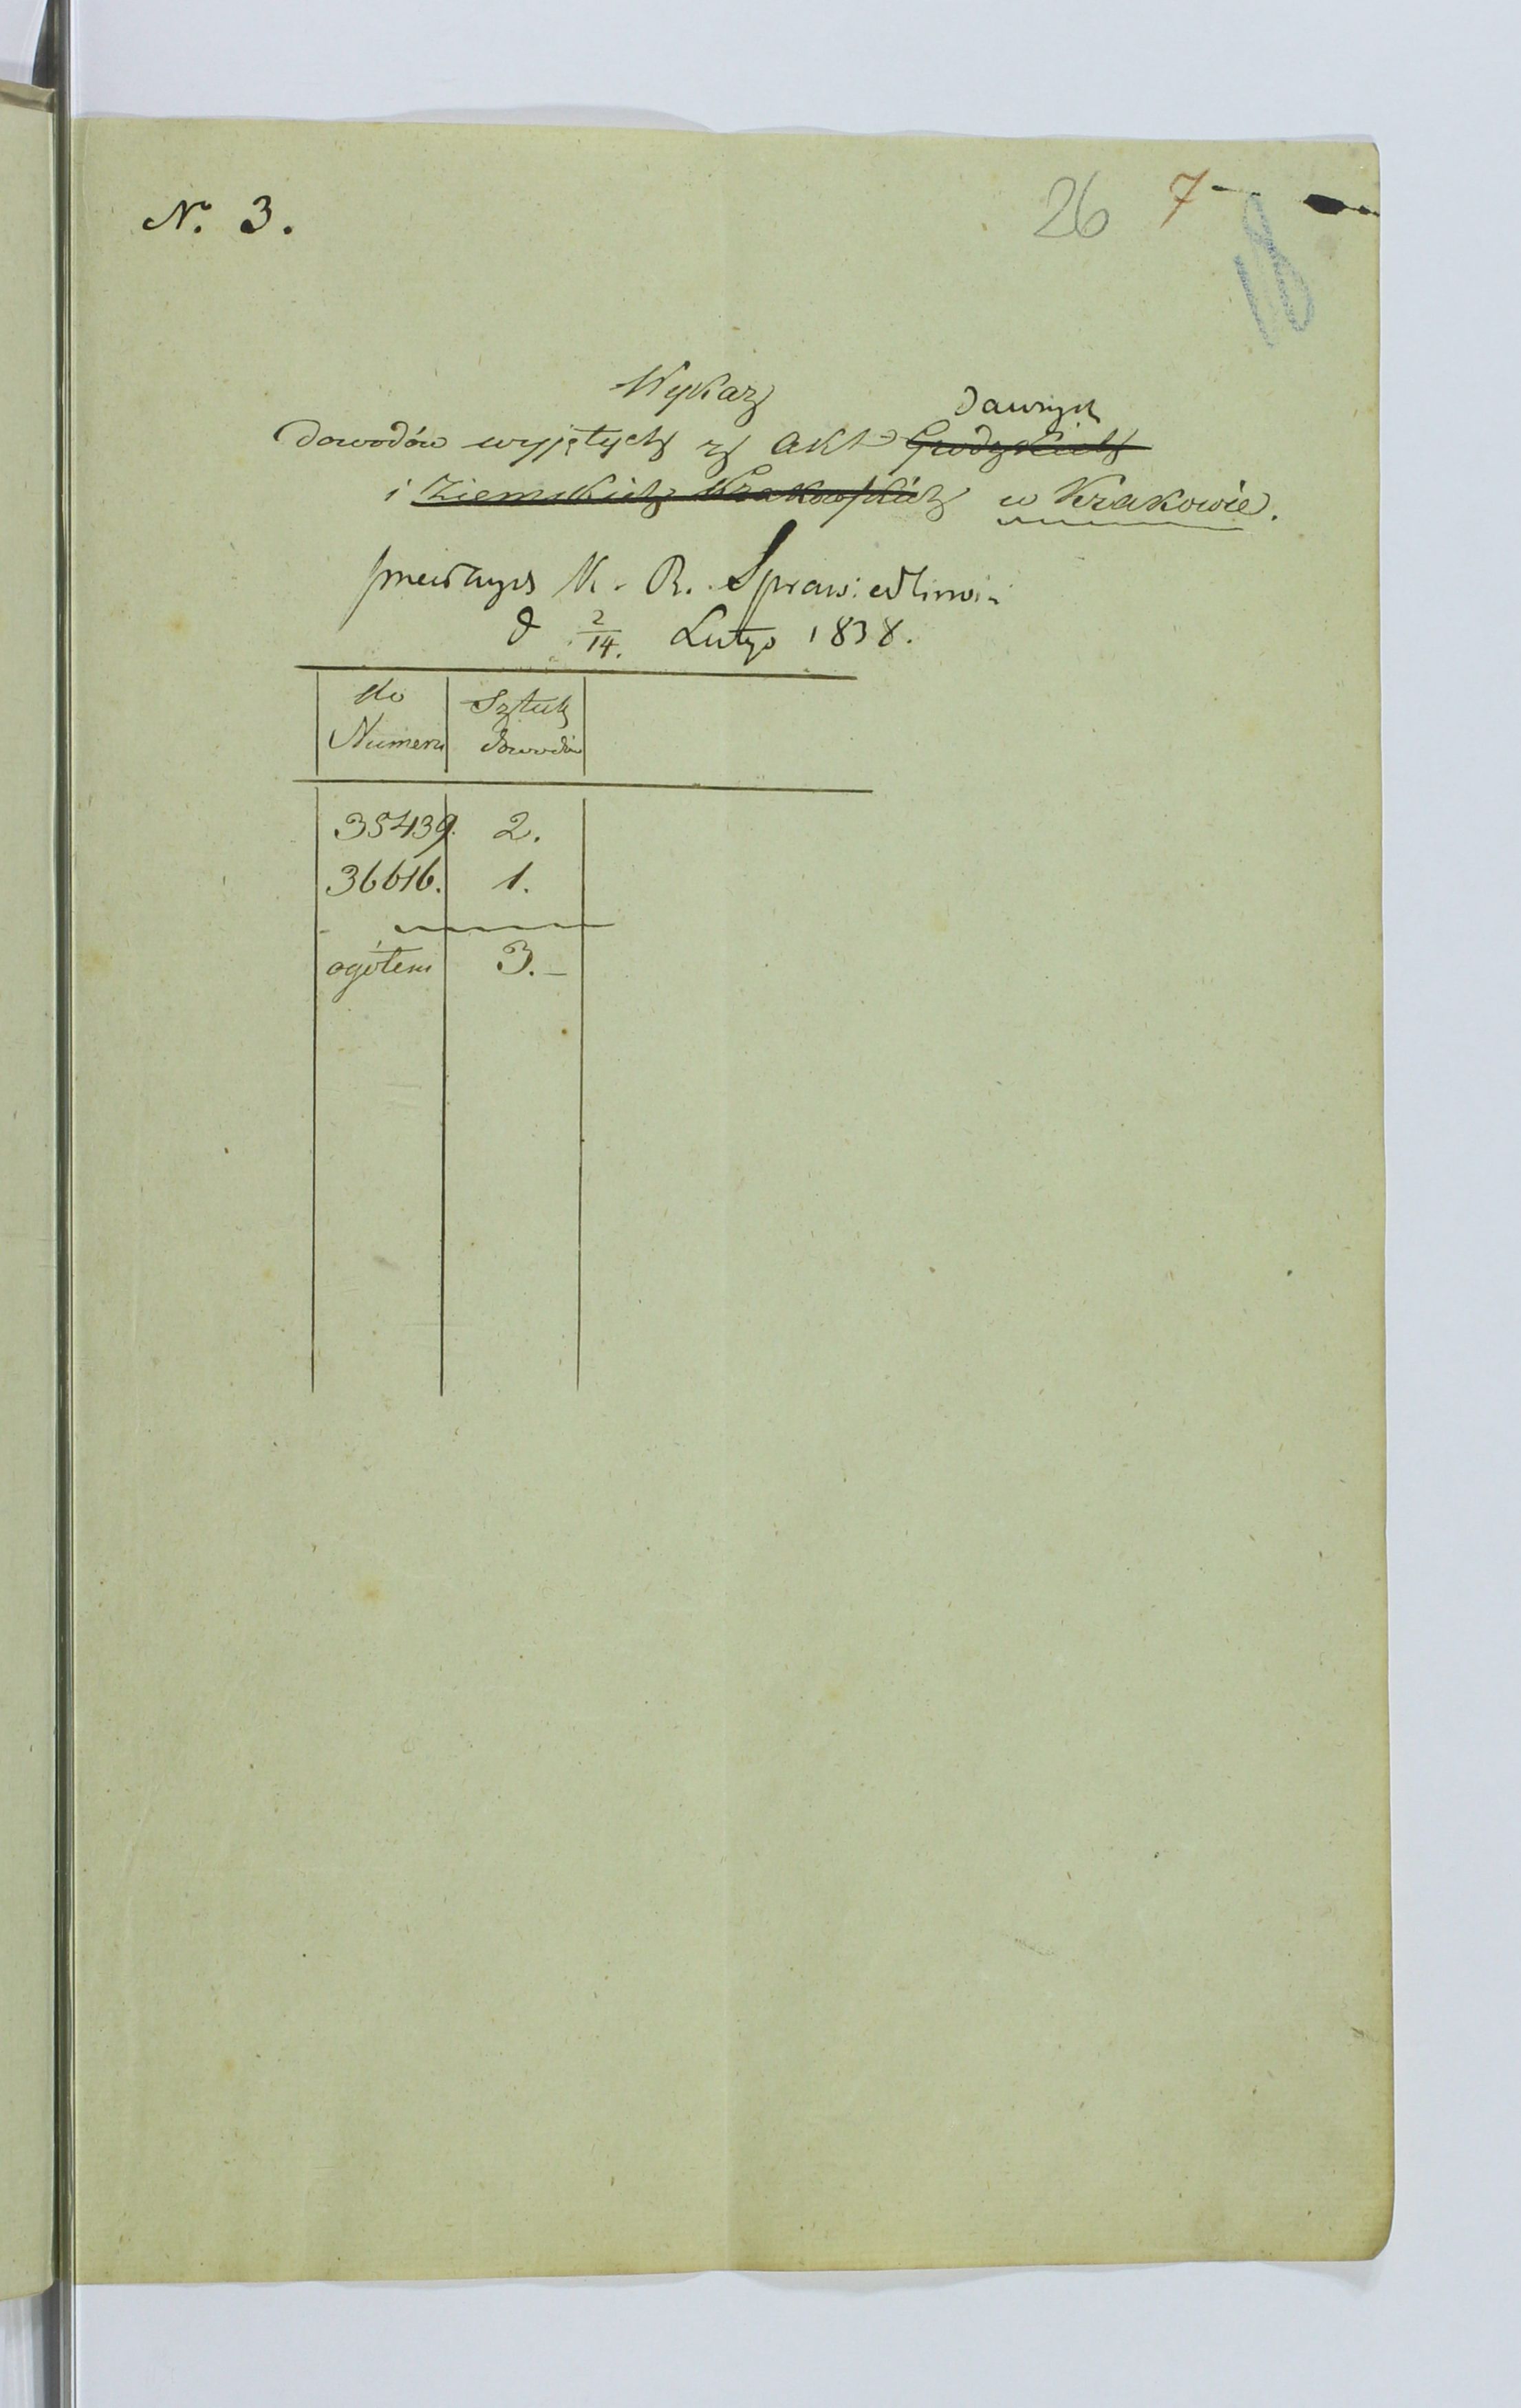 N. 3.
26 7
18
Wykaz
dawnych
dowodów wyjętych z Akt Grodzkich
i Ziemskich Krakowskich w Krakowie.
K. R. Sprawiedliwi
d 2/14. Lutego 1838.
do Sztuk
Numeru dowodów
35439. 2.
36616. 1.
ogółem 3.-